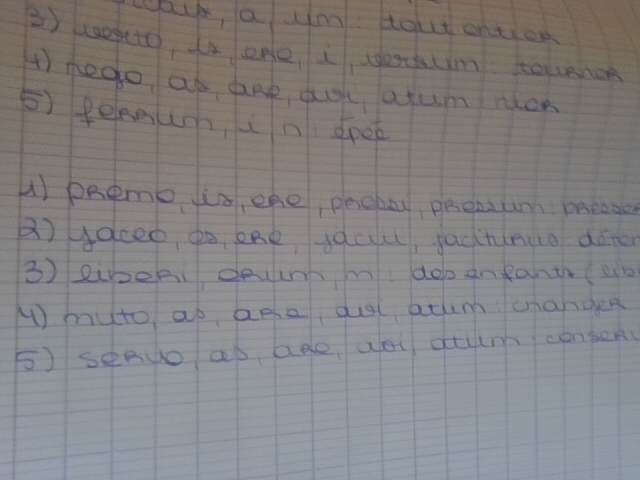 a, um
3) verto, is, ere, i, versum : tourner
4) nego, as, are, avi, atum : nier
5) ferrum, i, n : épée
1) premo, is, ere, pressi, pressum : presser
2) jaceo, es, ere, jacui, jaciturus
3) liberi, orum, m : des enfants
4) muto, as, are, avi, atum : changer
5) servo, as, are, avi, atum :